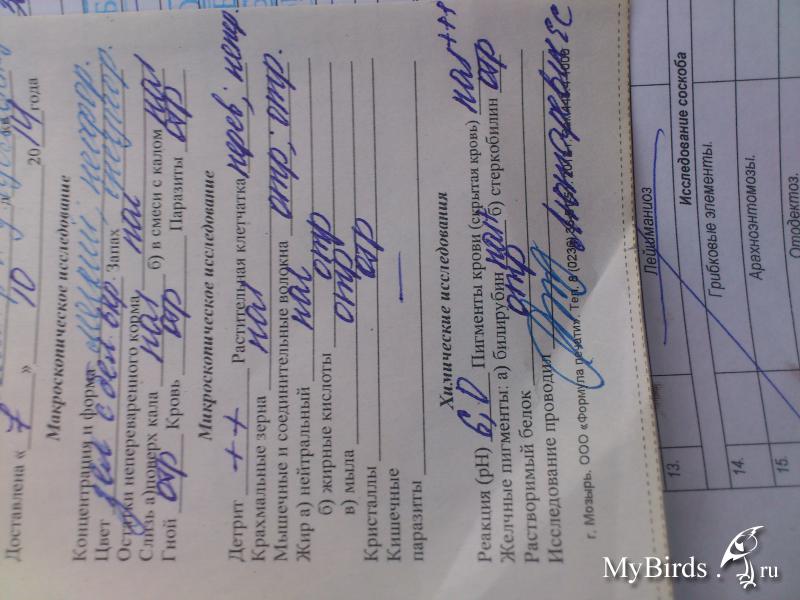 Доставлена « 7 » 10 2014 года
Микроскопическое исследование
Концентрация и форма мягкий, неоформ.
Цвет зел с бел. вкр. Запах
Остатки непереваренного корма нал
Слизь а) поверх кала нал б) в смеси с калом нал
Гной отр Кровь отр Паразиты отр
Микроскопическое исследование
Детрит ++ Растительная клетчатка перев; непер.
Крахмальные зерна нал
Мышечные и соединительные волокна отр; отр.
Жир а) нейтральный нал
б) жирные кислоты отр
в) мыла отр
Кристаллы отр
Кишечные
паразиты —
Химические исследования
Реакция (pH) 6,0 Пигменты крови (скрытая кровь) нал+++
Желчные пигменты: а) билирубин нал б) стеркобилин отр
Растворимый белок отр
Исследование проводил
г. Мозырь. ООО «Формула печати». Тел. 8 (0236)
13.
Лейшманиоз
Исследование соскоба
14.
Грибковые элементы.
Арахноэнтомозы.
15.
Отодектоз.
MyBirds.ru